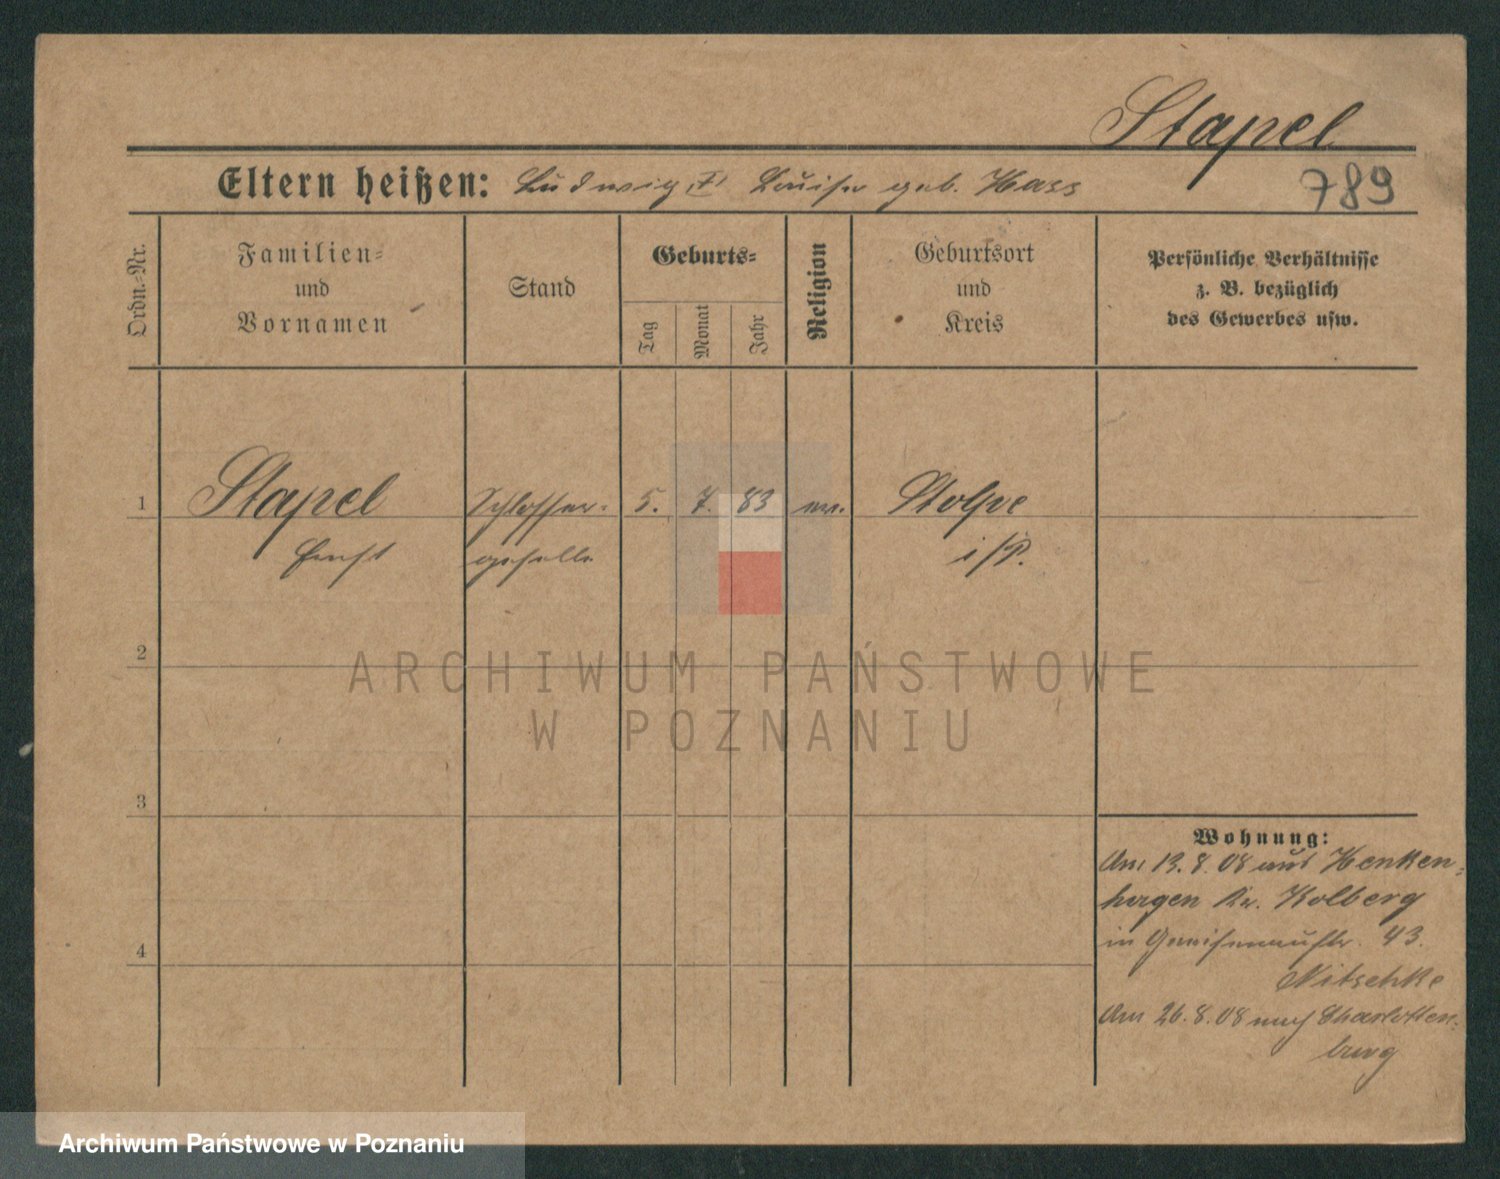 Stapel
Eltern heißen: Ludwig † Louise geb. Hass
789
Ordn.-Nr.
Familien-
und
Vornamen
Stand
Geburts-
Tag
Monat
Jahr
Religion
Geburtsort
und
Kreis
Persönliche Verhältnisse
z. B. bezüglich
des Gewerbes usw.
1 Stapel Schlosser- 5. 7. 83 ev. Stolpe
Ernst geselle i/P.
2
ARCHIWUM PAŃSTWOWE
W POZNANIU
3
Wohnung:
Am 13.8.08 aus Henken-
hagen Kr. Kolberg
4
in Gneisenaustr. 43.
Nitschke
Am 26.8.08 nach Charlotten-
burg
Archiwum Państwowe w Poznaniu